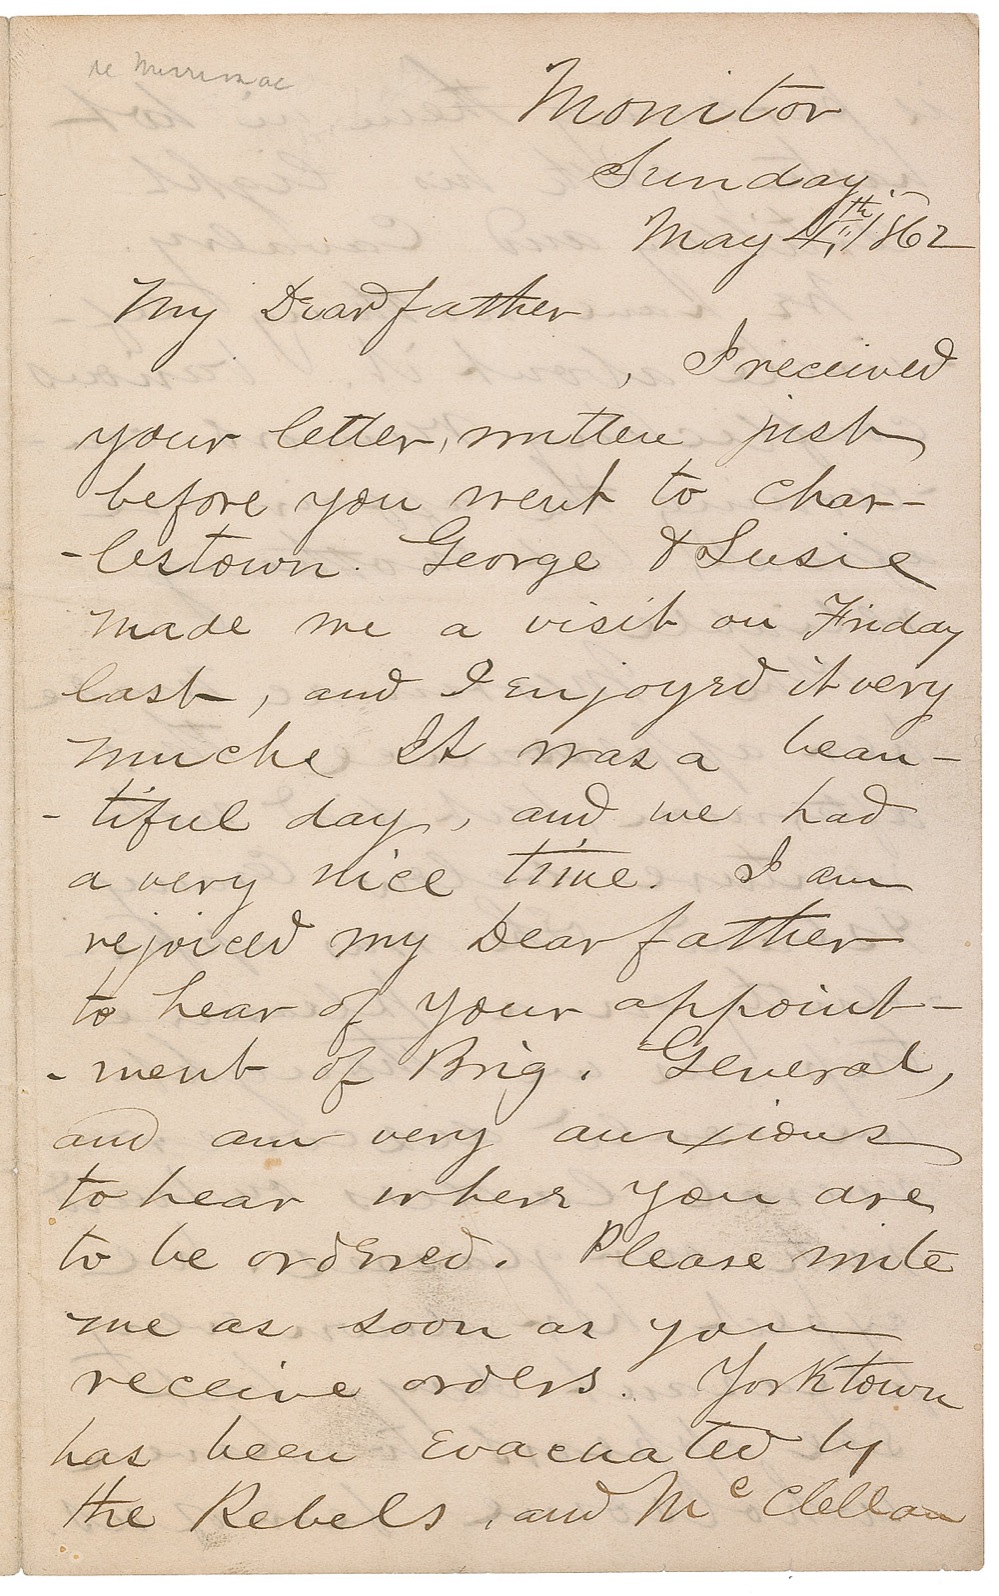 re Merrimac
Monitor
Sunday
May 4th, 1862
My Dear father
, I received
your letter, written just
before you went to Char-
-lestown. George & Susie
made me a visit on Friday
last, and I enjoyed it very
muche It was a beau-
-tiful day, and we had
a very nice time. I am
rejoiced my Dear father
to hear of your appoint-
-ment of Brig. General,
and am very anxious
to hear where you are
to be ordered. Please write
me as soon as you
receive orders. Yorktown
has been evacuated by
the Rebels, and McClellan